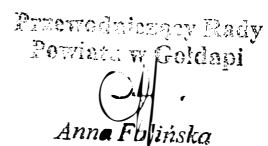 Przewodniczący Rady
Powiatu w Gołdapi
Anna Falińska